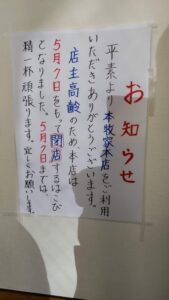 お知らせ
平素より本牧家本店をご利用
いただきありがとうございます。
店主高齢のため本店は
5月7日をもって閉店するはこび
となりました。5月7日までは、
精一杯頑張ります。宜しくお願いします。